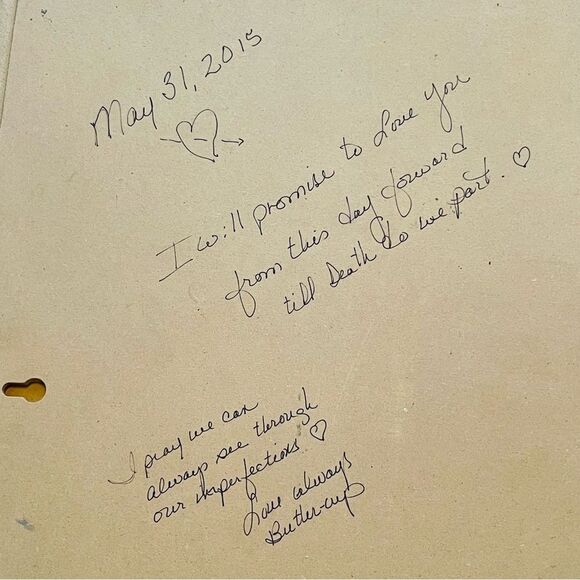 May 31, 2015
I will promise to Love You
from this day forward
till Death do we part.
I pray we can
always see through
our imperfections.
Love always
Butter-cup